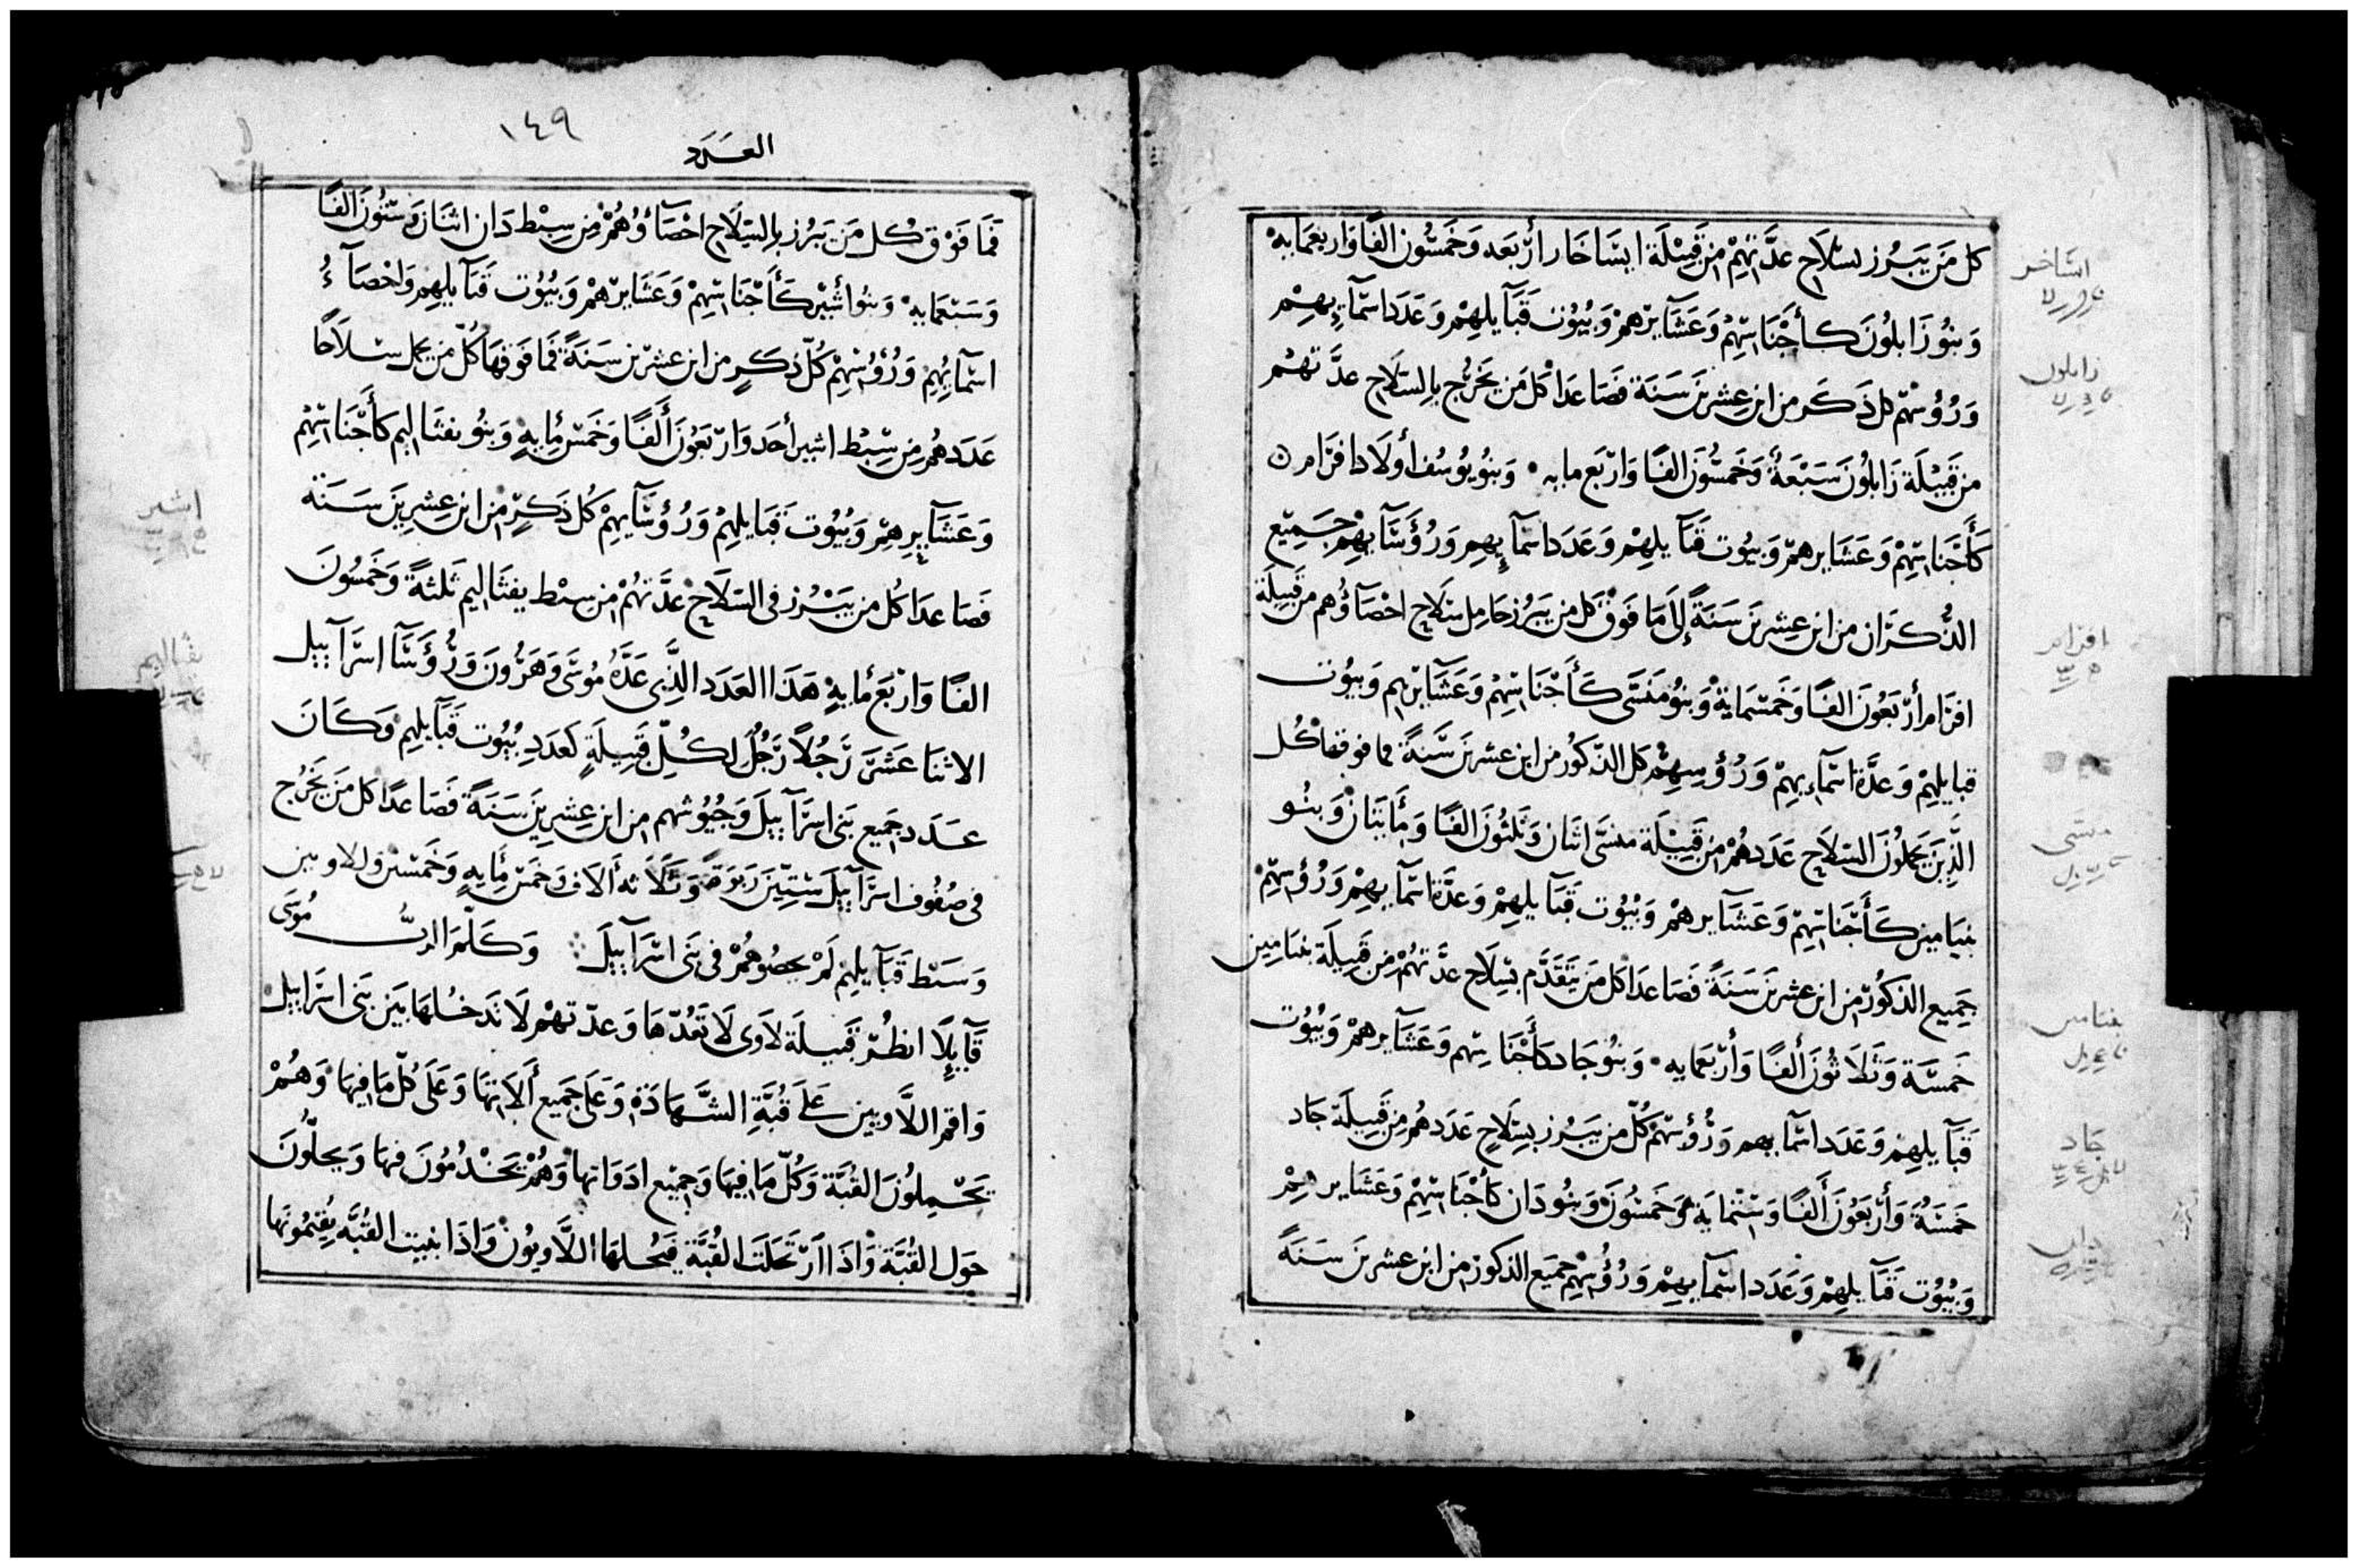 كل مَن يَبرُز بسِلَاح عدَّتهِمْ مِن قَبِيْلَة ايسَاخَار أرْبَعَه وَخَمسُون الفًا وَاربعمَايه
وَبنُو زَابلُونَ كأجْنَاسِهِمْ وَعَشَآيرهمْ وَبيُوُت قَبَآيلهِمْ وَعَدَد اسْمآءِيهِمْ
وَرُؤُسهْم كل ذَكَر من ابن عِشرينَ سَنَة فَصَاعدَا كُل مَن يَخرُج بالِسّلَاح عدَّتهُم
من قَبِيْلَة زَابلُونَ سَبْعَةُ وَخَمسُونَ الفًا وَارْبَع مايه وَبنُو يُوسُف أولَاد افرَام
كَأَجْنَاسِهِمْ وَعَشَايرهمْ وَبيُوت قَبَآيلهِمْ وَعَدَد اسْمآءِيهِم وَرُؤَسَآيهِم جَمِيْع
الذُّكرَان من ابن عشرينَ سَنَةً إلَى مَا فَوْق كل من يَبرُز حَامِل سلَاح احْصَآؤهم من قَبِيْلَة
افرَام أرْبَعُونَ الفًا وَخَمسْمَايةْ وَبنُو مَنَسَّى كَأَجْنَاسِهِمْ وَعَشَآيرهم وَبيُوت
قبايلهِمْ وَعدَّة اسْمآءيهِمْ وَرُؤُسهِمْ كل الذّكوُر من ابن عشرينَ سَنَةً فما فوقها كُل
الَّذِينَ يَحملُونَ السّلَاح عَدَدهُمْ مِن قَبِيْلَة منسَّى اثنَان وَثَلثُونَ الفًا وَمَأيتَانْ وَبنُو
بنيَامين كَأَجْنَاسهِمْ وَعَشَآيرهمْ وَبيُوت قبَآيلهِمْ وَعدَّة اسْمآيهِمْ وَرُؤُسهِمْ
جَمِيع الذكوُر من ابن عشرينَ سَنَةً فَصَاعدَا كل مَن يَتَقَدَّم بسِلَاح عدَّتهُمْ مِن قَبِيلَة بنيَامِين
خَمسَة وَثَلَاثُونَ أَلفًا وَأرْبَعمَايه وَبنُو جَاد كأَجْنَاسهم وَعَشَآيرهمْ وَبيُوُت
قَبَآيلهِمْ وَعَدَد اسْمآيهم وَرُؤُسهْم كُلّ من يَبرُز بسِلَاح عَدَدهُم مِن قَبِيلَة جَاد
خَمسَةُ وَأرْبَعُونَ أَلفًا وَسْتْمايَة وَخَمسُونْ وَبنُو دَان كَأجْنَاسهِمْ وَعَشَايرهِمْ
وَبيُوُت قَبَآيلهِمْ وَعَدَد اسْمآيهِمْ وَرُؤُسهِمْ جَمِيَع الذكور من ابن عشرينَ سَنَةً
اسَاخر
زابلون
افرام
منسى
بنيامين
جاد
دان
١٤٩
العَدَد
فَمَا فَوْق كُل مَن يَبرُز بالِسّلَاح احْصَآؤُهُمْ مِن سِبْط دَان اثنَان وَستُونَ الفًا
وَسَبْعمَايه وَبنُو أشْير كَأَجْنَاسهِمْ وَعَشَايرهمْ وَبيُوُت قَبَآيلهِم وَاحْصَآءُ
اسْمآئهِم وَرُؤُسهِمْ كُلّ ذكَرٍ من ابن عشرْين سَنَةً فَمَا فَوقهَا كُلّ من يحمل سلَاحًا
عَدَدهُم مِن سِبْط اشير أحَد وَارْبَعُونَ أَلفًا وَخَمسْ مُايهٍ وَبنُو نفثَاليم كَأَجْنَاسهِمْ
وَعَشَآيرِهِمْ وَبيُوُت قَبَايلهِمْ وَرُؤُسَآيهِمْ كُل ذَكَرٍ مِن ابن عِشرِينَ سَنَة
فَصَاعدَا كُل من يَبْرُز فى السّلَاح عدَّتهُمْ مِن سبْط يفثَاليم ثَلثةً وَخَمسُونَ
الفًا وَارْبَع مُايهٍ هَذَا العَدَد الَّذِى عَدَّهُ مُوسَى وَهَرُونَ وَرُؤَسَآ اسرَآييل
الاثنَا عَشَر رَجُلاً رَجُلٌ لكُلِّ قَبِيلَةٍ كعَدَدِ بيُوت قَبَآيلهِم وَكَانَ
عَدَد جَميع بَنى اسرَآييلَ وَجُيُوشهم من ابن عِشرِينَ سَنَةً فَصَاعدًا كل مَن يَخرُج
فى صُفُوف اسرَآييلَ ستِيْنَ رَبوَةً وَثَلَاثه أَلَاف وَخَمسْ مُايهٍ وَخَمسْين واللاويين
وَسَط قَبَآيلهِم لَمْ يحصُوهُمْ فى بَنى اسْرَآييلَ وَكَلَّمَ الربُّ مُوسَى
قَآيلًا انظُرْ قَبيلَة لَاوَى لَا تَعُدّهَا وَعدّتهمْ لَا تَدخُلهَا بَيْنَ بَنى اسرَاييل
وَاقم اللَّاويين عَلَى قُبَّةِ الشَّهَادَةِ وَعَلَى جَميع أَلَاتهَا وَعَلَى كُلّ مَا فِيهَا وَهُمْ
يَحْمِلُونَ القُبَّة وَكُلّ مَا فِيهَا وَجِميْع ادَوَاتها وَهُمْ يَخْدُمُونَ فيهَا وَيحلُّونَ
حَول القُبَّة وَاذَا ارْتَحَلَت القُبَّة فَيحُلهَا اللَّاويُونْ وَاذَا بنيت القُبَّه يُقيمُونَها
اشير
نفثاليم